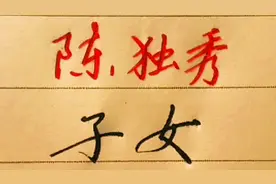 陈独秀
子女